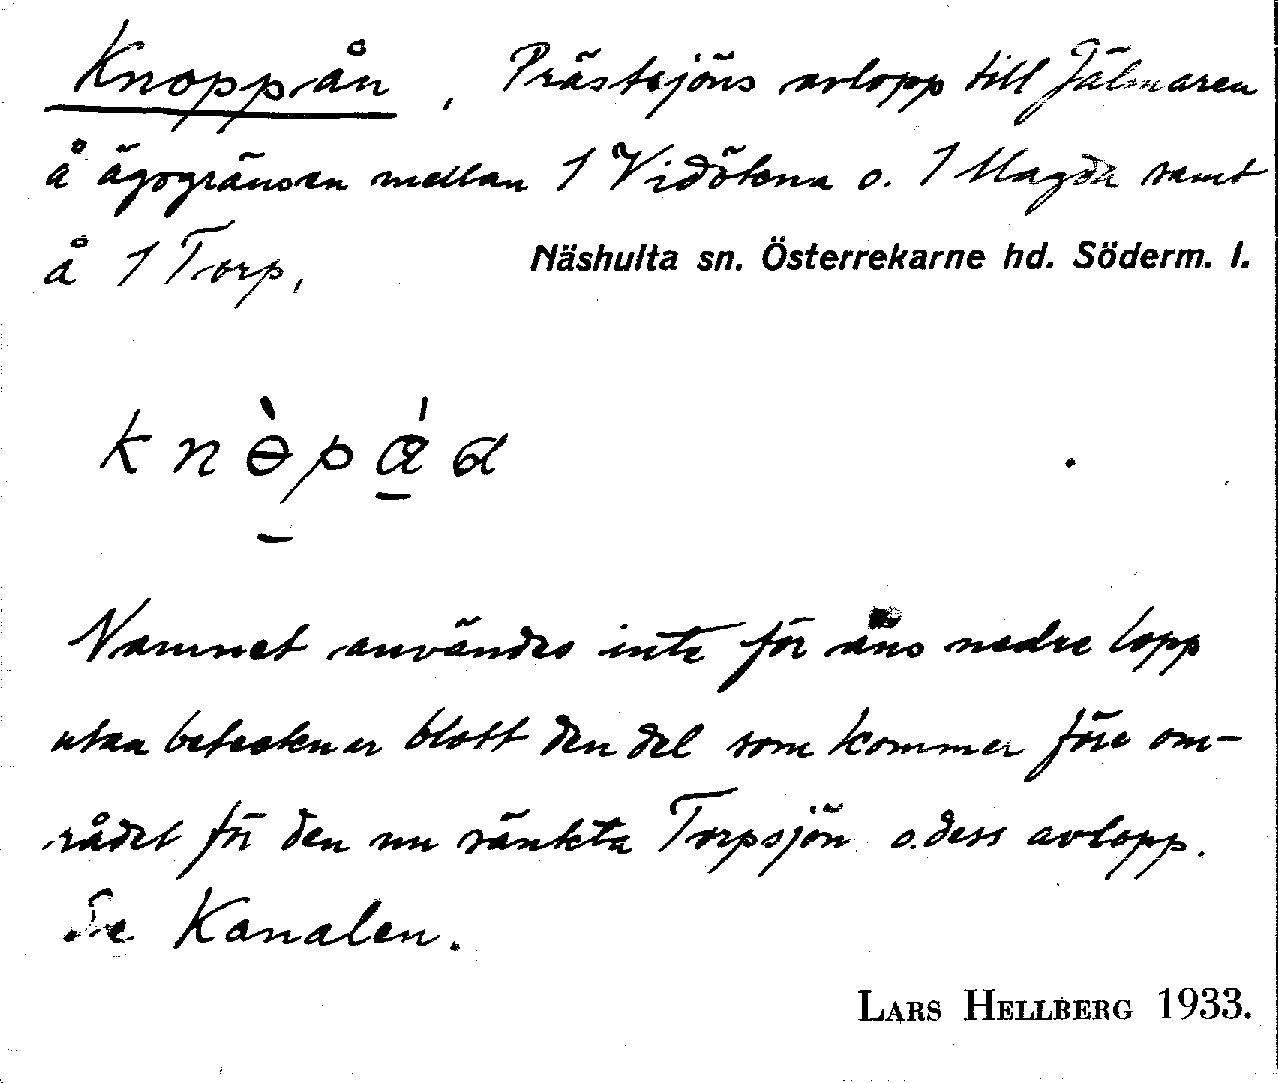 Knoppån, Prästsjöns avlopp till Jälmaren
å ägogränsen mellan 1 Vidökna o. 1 Magda samt
å 1 Torp,
Näshulta sn. Österrekarne hd. Söderm. l.
knɵ̀pá̱a
Namnet användes inte för åns nedre lopp
utan betecknar blott den del som kommer före om-
rådet för den nu sänkta Torpsjön o. dess avlopp.
Se Kanalen.
LARS HELLBERG 1933.